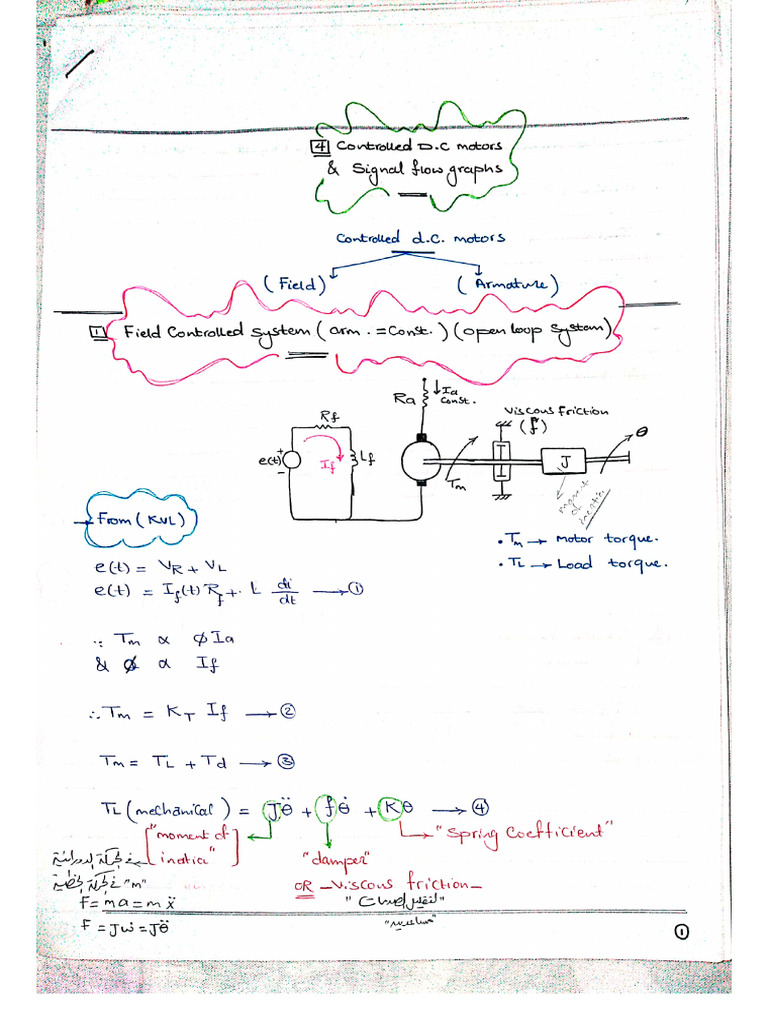 4 Controlled D.C motors
& Signal flow graphs
Controlled d.C. motors
(Field) (Armature)
1 Field Controlled system (arm. = Const.) (open loop system)
Ra Ia Const.
Rf
Viscous friction
(f)
θ
e(t) + - If Lf
Tm
J
moment of inertia
→ From (KVL)
• Tm → Motor torque.
• TL → Load torque.
e(t) = VR + VL
e(t) = If(t) Rf + L di/dt → ①
∵ Tm α φ Ia
& φ α If
∴ Tm = KT If → ②
Tm = TL + Td → ③
TL (mechanical) = Jθ̈ + fθ̇ + Kθ → ④
["moment of inatia"]
"damper"
"Spring Coefficient"
OR - Viscous friction -
في الحركة الدورانية
"m" في الحركة الخطية
F = ma = mẍ
F = Jω̇ = Jθ̈
①